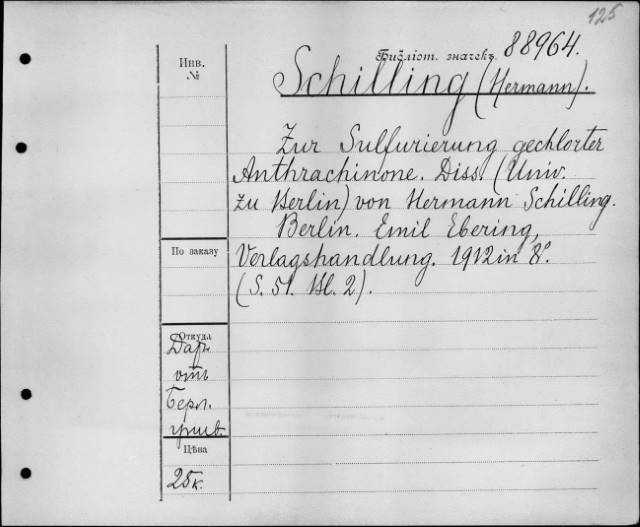 125
Библіот. значекъ 88964.
Инв.
№
Schilling (Hermann).
Zur Sulfurierung gechlorter
Anthrachinone. Diss. (Univ.
zu Berlin) von Hermann Schilling.
Berlin. Emil Ebering,
Verlagshandlung. 1912 in 8º.
(S. 51. Bl. 2).
По заказу
Откуда
Даръ
отъ
Берл.
унив.
Цѣна
25 к.